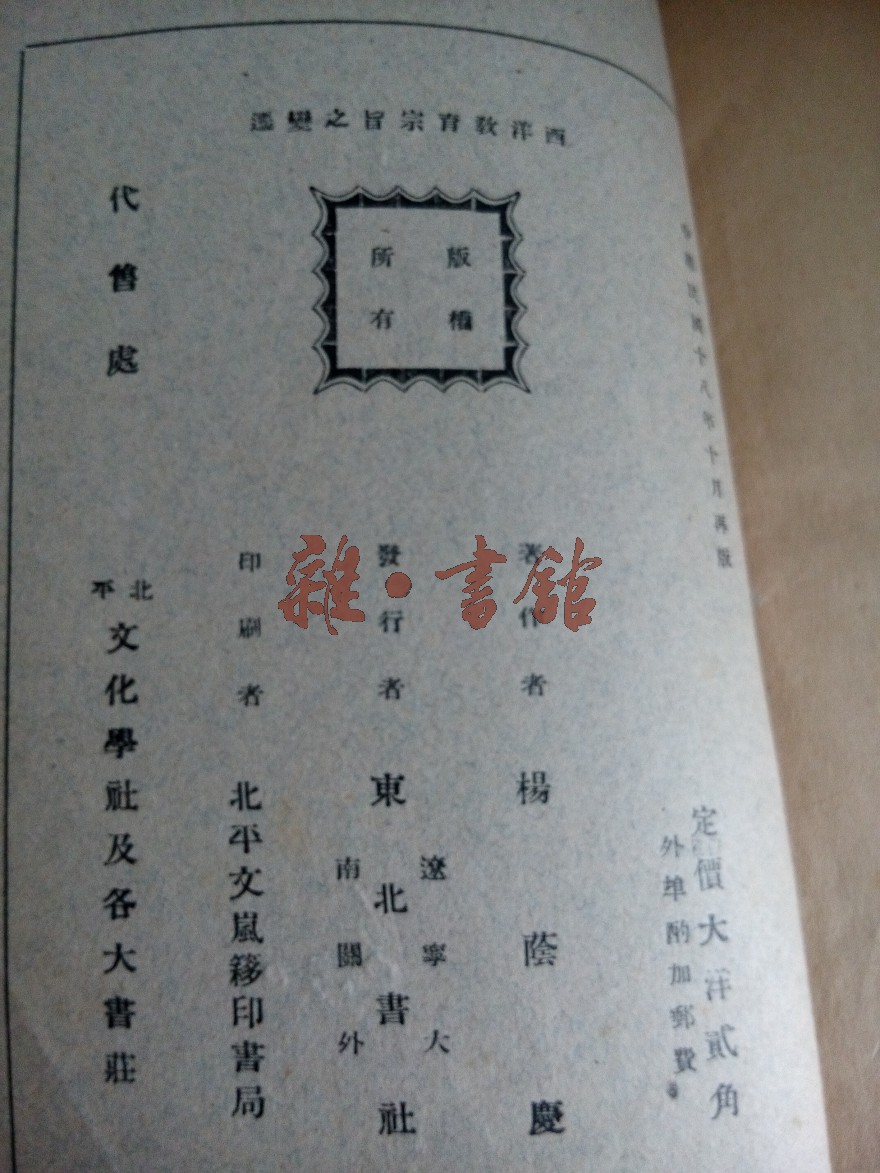 中華民國十八年十月再版
西洋教育宗旨之變遷
版權
所有
定價大洋貳角
外埠酌加郵費
著作者 楊蔭慶
發行者 遼寧大南關外 東北書社
印刷者 北平文嵐簃印書局
代售處 北平 文化學社及各大書莊
雜·書館